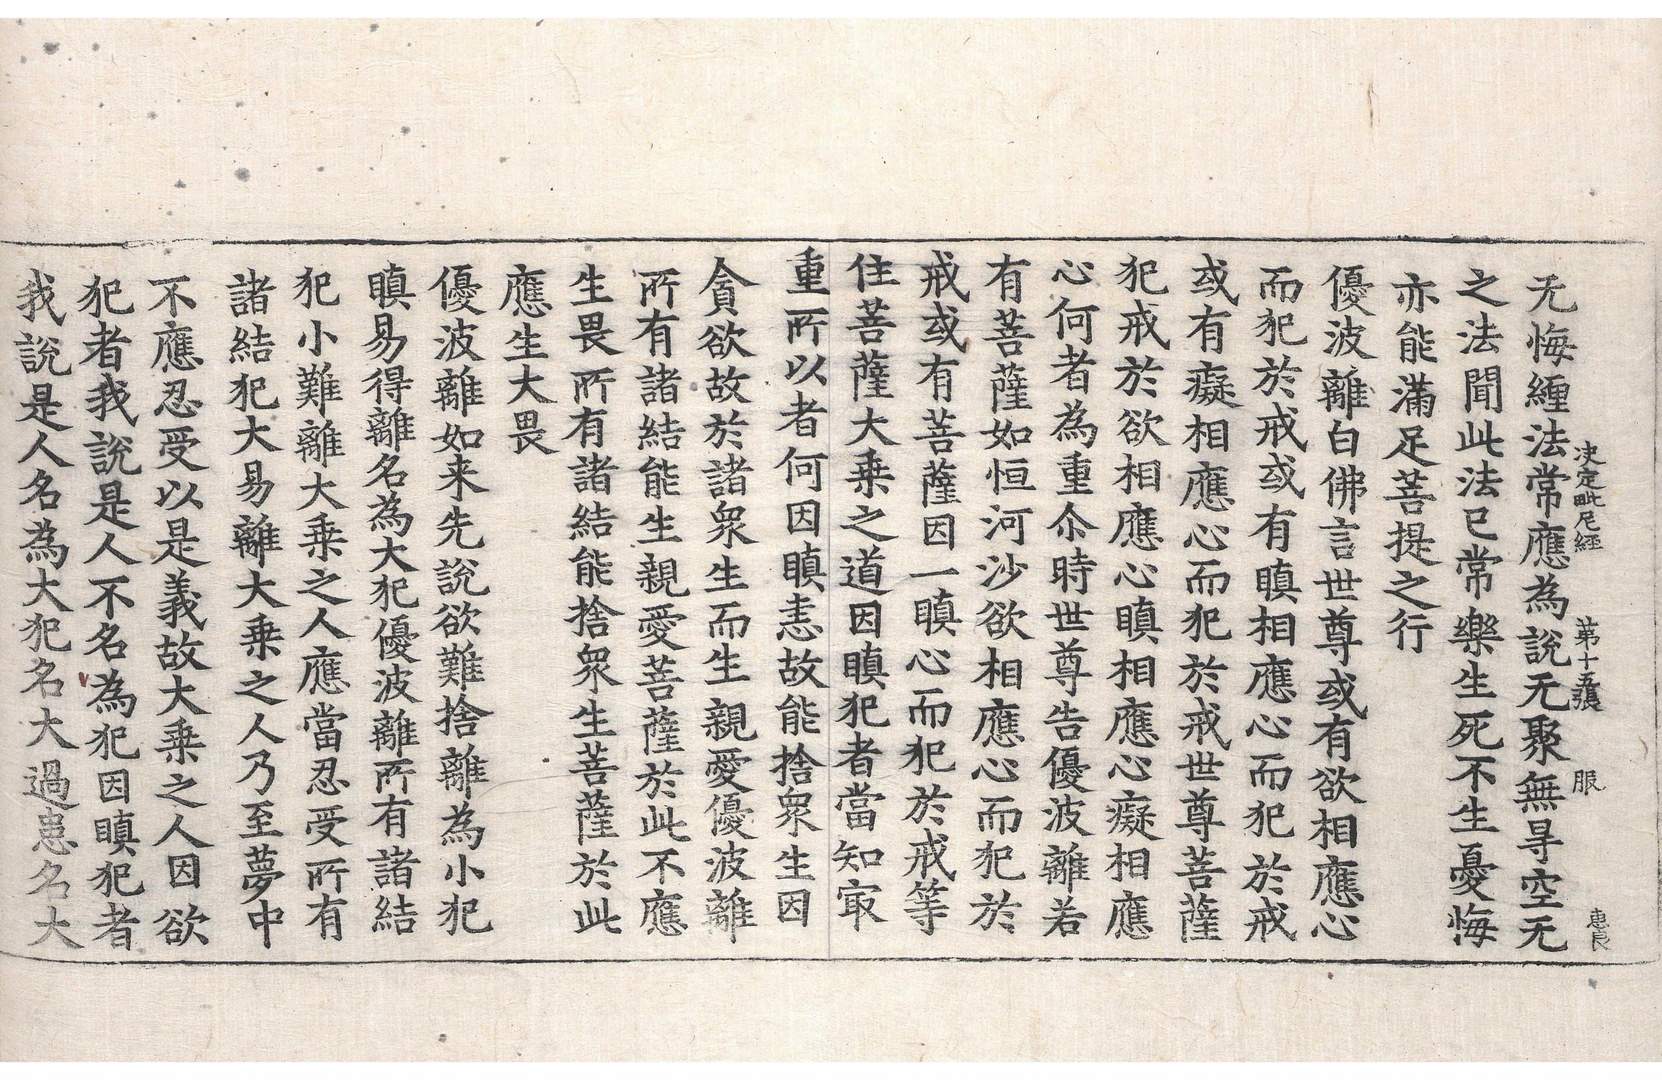 决定毗尼經 第十五張 服 惠良
无悔纏法常應為說无聚無㝵空无
之法聞此法已常樂生死不生憂悔
亦能滿足菩提之行
優波離白佛言世尊或有欲相應心
而犯於戒或有瞋相應心而犯於戒
或有癡相應心而犯於戒世尊菩薩
犯戒於欲相應心瞋相應心癡相應
心何者為重尒時世尊告優波離若
有菩薩如恒河沙欲相應心而犯於
戒或有菩薩因一瞋心而犯於戒等
住菩薩大乗之道因瞋犯者當知㝡
重所以者何因瞋恚故能捨眾生因
貪欲故於諸眾生而生親愛優波離
所有諸結能生親愛菩薩於此不應
生畏所有諸結能捨眾生菩薩於此
應生大畏
優波離如来先說欲難捨離為小犯
瞋易得離名為大犯優波離所有諸結
犯小難離大乗之人應當忍受所有
諸結犯大易離大乗之人乃至夢中
不應忍受以是義故大乗之人因欲
犯者我說是人不名為犯因瞋犯者
我說是人名為大犯名大過患名大